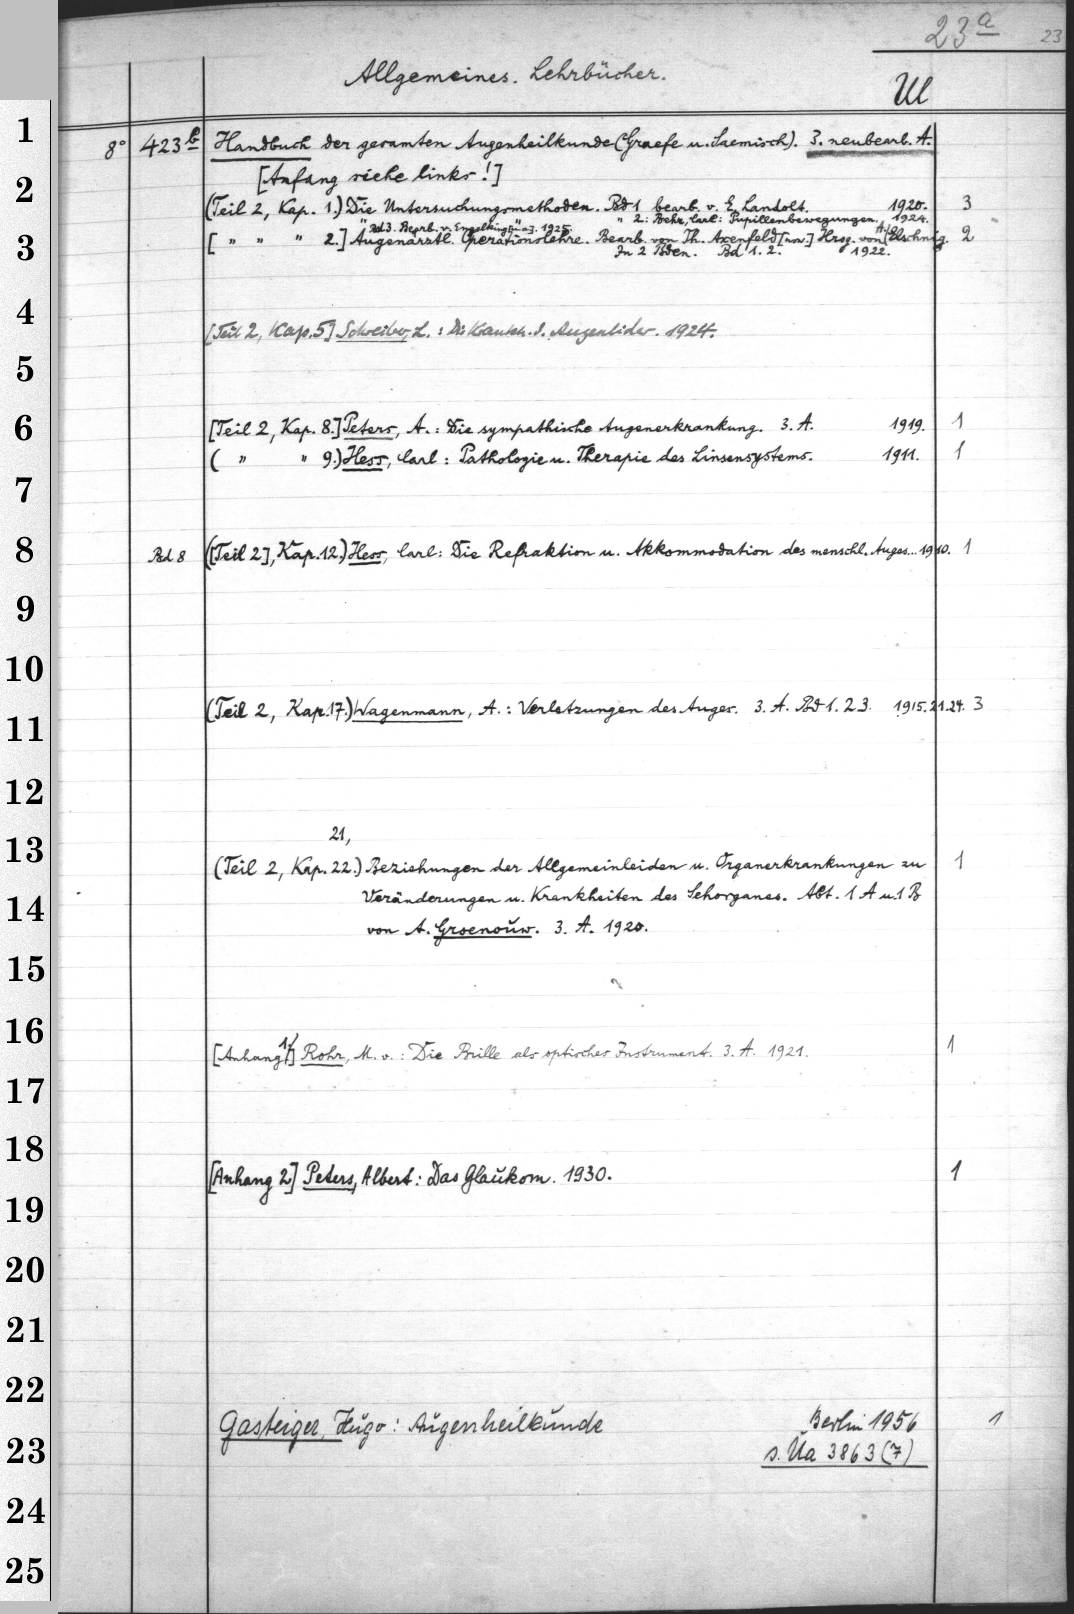 23a 23
Allgemeines. Lehrbücher.
Ul
1
8° 423b Handbuch der gesamten Augenheilkunde (Graefe u. Saemisch). 3. neubearb. A.
[Anfang siehe links!]
2
(Teil 2, Kap. 1.) Die Untersuchungsmethoden. Bd 1 bearb. v. E. Landolt. 1920. 3
" " 2: Behr, Carl: Pupillenbewegungen. 1924.
Bd 3. Bearb. v. Engelking u. a. 3. 1925.
3
[ " " " 2.] Augenärztl. Operationslehre. Bearb. von Th. Axenfeld [usw.] Hrsg. von A. Elschnig. 2
In 2 Bden. Bd 1. 2. 1922.
4
[Teil 2, Kap. 5] Schreiber, L.: Die Krankh. d. Augenlider. 1924.
5
6
[Teil 2, Kap. 8.] Peters, A.: Die sympathische Augenerkrankung. 3. A. 1919. 1
( " " 9.) Hess, Carl: Pathologie u. Therapie des Linsensystems. 1911. 1
7
8
Bd 8 ([Teil 2], Kap. 12.) Hess, Carl: Die Refraktion u. Akkommodation des menschl. Auges... 1910. 1
9
10
(Teil 2, Kap. 17.) Wagenmann, A.: Verletzungen des Auges. 3. A. Bd 1. 2 3. 1915. 21. 24. 3
11
12
21,
13
(Teil 2, Kap. 22.) Beziehungen der Allgemeinleiden u. Organerkrankungen zu 1
Veränderungen u. Krankheiten des Sehorganes. Abt. 1 A u. 1 B
14
von A. Groenouw. 3. A. 1920.
15
16
[Anhang 1] Rohr, M. v.: Die Brille als optisches Instrument. 3. A. 1921. 1
17
18
[Anhang 2] Peters, Albert: Das Glaukom. 1930. 1
19
20
21
22
Gasteiger, Hugo: Augenheilkunde Berlin 1956 1
23
s. Ua 3863 (7)
24
25